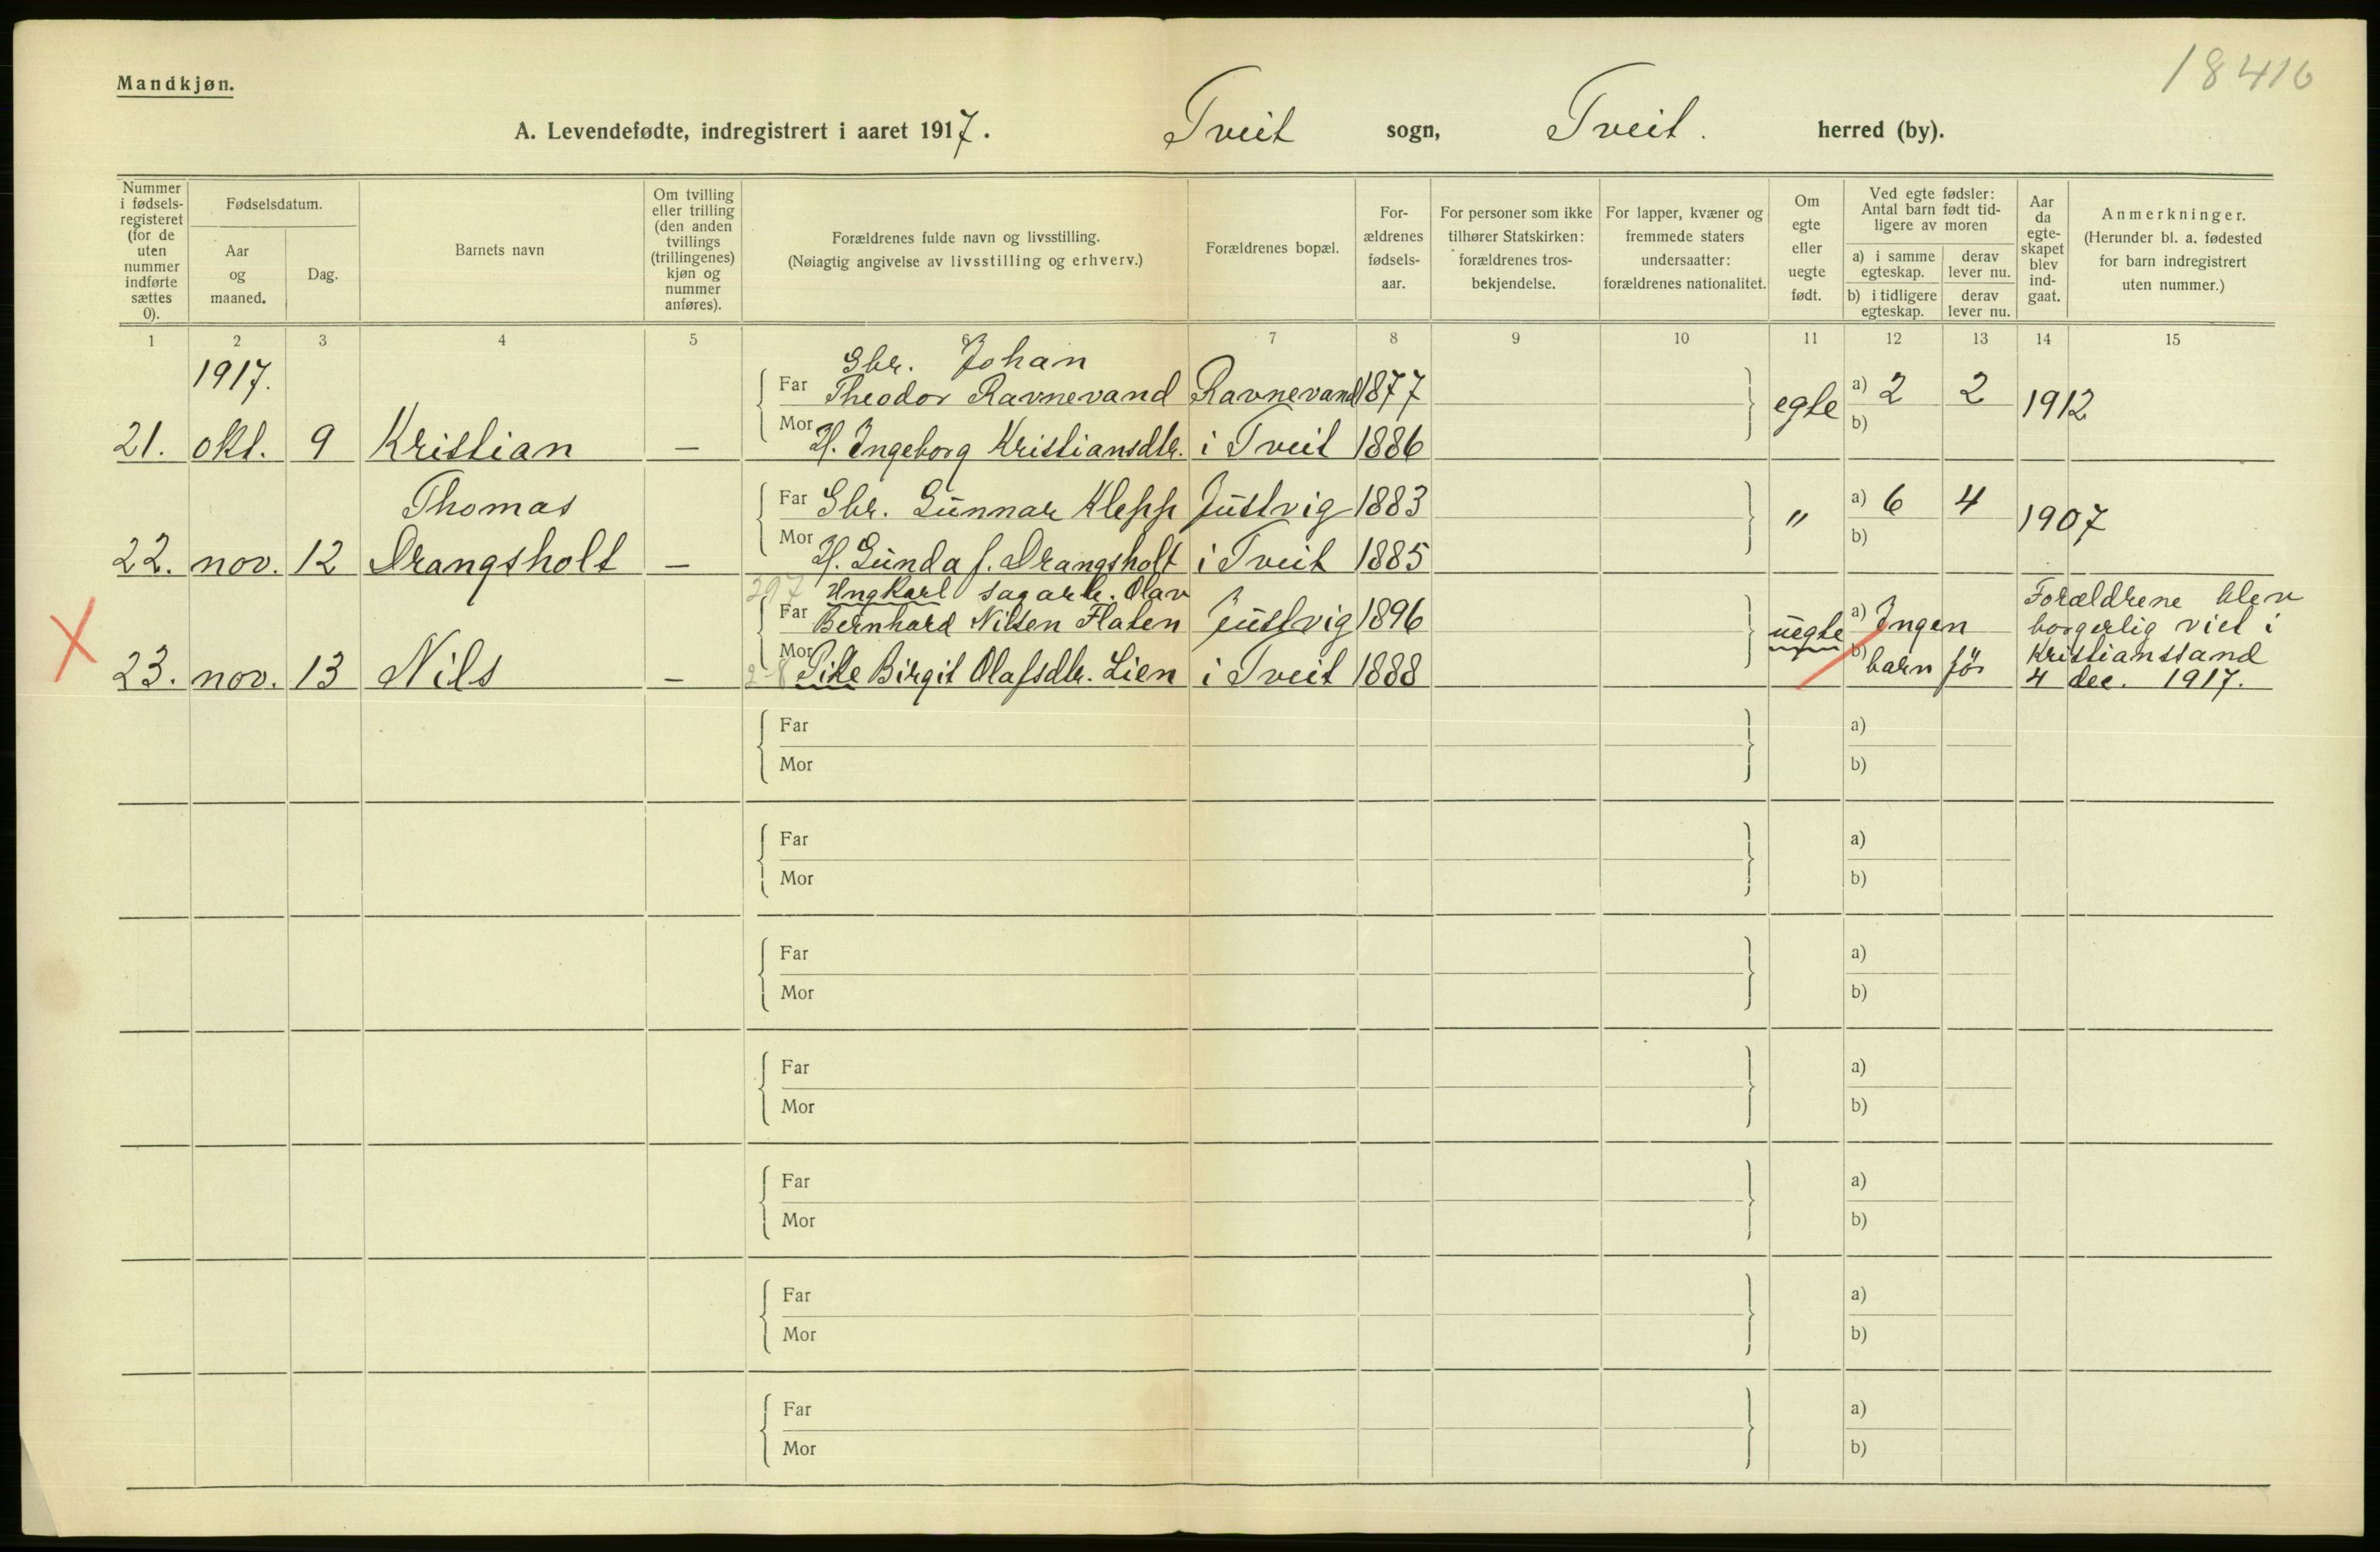 18416
Mandkjøn.
A. Levendefødte, indregistrert i aaret 1917. Tveit sogn, Tveit. herred (by).
Nummer i fødsels-registeret (for de uten nummer indførte sættes 0).
Fødselsdatum.
Aar og maaned.
Dag.
Barnets navn
Om tvilling eller trilling (den anden tvillings (trillingenes) kjøn og nummer anføres).
Forældrenes fulde navn og livsstilling.
(Nøiagtig angivelse av livsstilling og erhverv.)
Forældrenes bopæl.
For-ældrenes fødsels-aar.
For personer som ikke tilhører Statskirken: forældrenes tros-bekjendelse.
For lapper, kvæner og fremmede staters undersaatter: forældrenes nationalitet.
Om egte eller uegte født.
Ved egte fødsler: Antal barn født tid-ligere av moren
a) i samme egteskap. derav lever nu.
b) i tidligere egteskap. derav lever nu.
Aar da egte-skapet blev ind-gaat.
Anmerkninger.
(Herunder bl. a. fødested for barn indregistrert uten nummer.)
1 2 3 4 5 6 7 8 9 10 11 12 13 14 15
1917. Gbr. Johan
Far Theodor Ravnevand Ravnevand 1877 egte a) 2 2 1912
21. okt. 9 Kristian — Mor H. Ingeborg Kristiansdtr. i Tveit 1886 b)
Thomas Far Gbr. Gunnar Klepp Justvig 1883 " a) 6 4 1907
22. nov. 12 Drangsholt — Mor H. Gunda f. Drangsholt i Tveit 1885 b)
Ungkarl sagarb. Olav
Far Bernhard Nilsen Flaten Justvig 1896 uegte a) Ingen Forældrene blev borgerlig viet i
23. nov. 13 Nils — Mor Pike Birgit Olafsdtr. Lien i Tveit 1888 b) barn før Kristianssand 4 dec. 1917.
Far a)
Mor b)
Far a)
Mor b)
Far a)
Mor b)
Far a)
Mor b)
Far a)
Mor b)
Far a)
Mor b)
Far a)
Mor b)